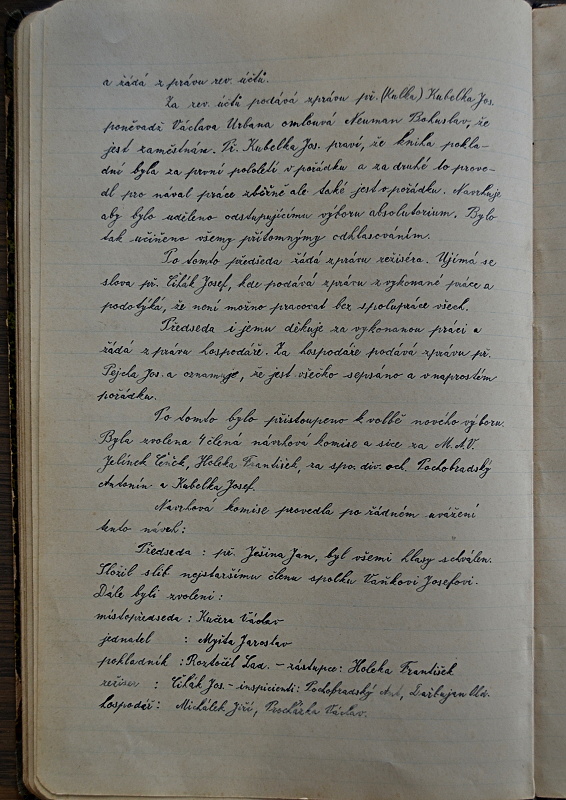 a žádá zprávu rev. účtů.
Za rev. účtů podává zprávu př. (Kulka) Kubelka Jos.
poněvadž Václava Urbana omlouvá Neuman Bohuslav, že
jest zaměstnán. Př. Kubelka Jos. praví, že kniha pokla-
dní byla za první pololetí v pořádku a za druhé to prove-
dl pro nával práce zběžně ale také jest v pořádku. Navrhuje
aby bylo uděleno odstupujícímu výboru absolutorium. Bylo
tak učiněno všemy přítomnýmy odhlasováním.
Po tomto předseda žádá zprávu režiséra. Ujímá se
slova př. Cilák Josef, kde podává zprávu z vykonané práce a
podotýká, že není možno pracovat bez spolupráce všech.
Předseda i jemu děkuje za vykonanou práci a
žádá zprávu hospodáře. Za hospodáře podává zprávu př.
Pejcha Jos. a oznamuje, že jest všečko sepsáno a v naprostém
pořádku.
Po tomto bylo přistoupeno k volbě nového výboru.
Byla zvolena 4 člená návrhová komise a sice za M.A.V.
Jelínek Čeněk, Holeka František, za spo. div. och. Pochobradský
Antonín a Kubelka Josef.
Navrhová komise provedla po řádném uvážení
tento návrh:
Předseda : př. Ješina Jan, byl všemi hlasy schválen.
Složil slib nejstaršímu členu spolku Vaňkovi Josefovi.
Dále byli zvoleni :
místopředseda : Kučera Václav
jednatel : Myška Jaroslav
pokladník : Roztočil Lad. – zástupce : Holeka František
režiser : Cilák Jos. – inspicienti : Pochobradský Ant,
hospodář : Michálek Jiří, Procházka Václav.